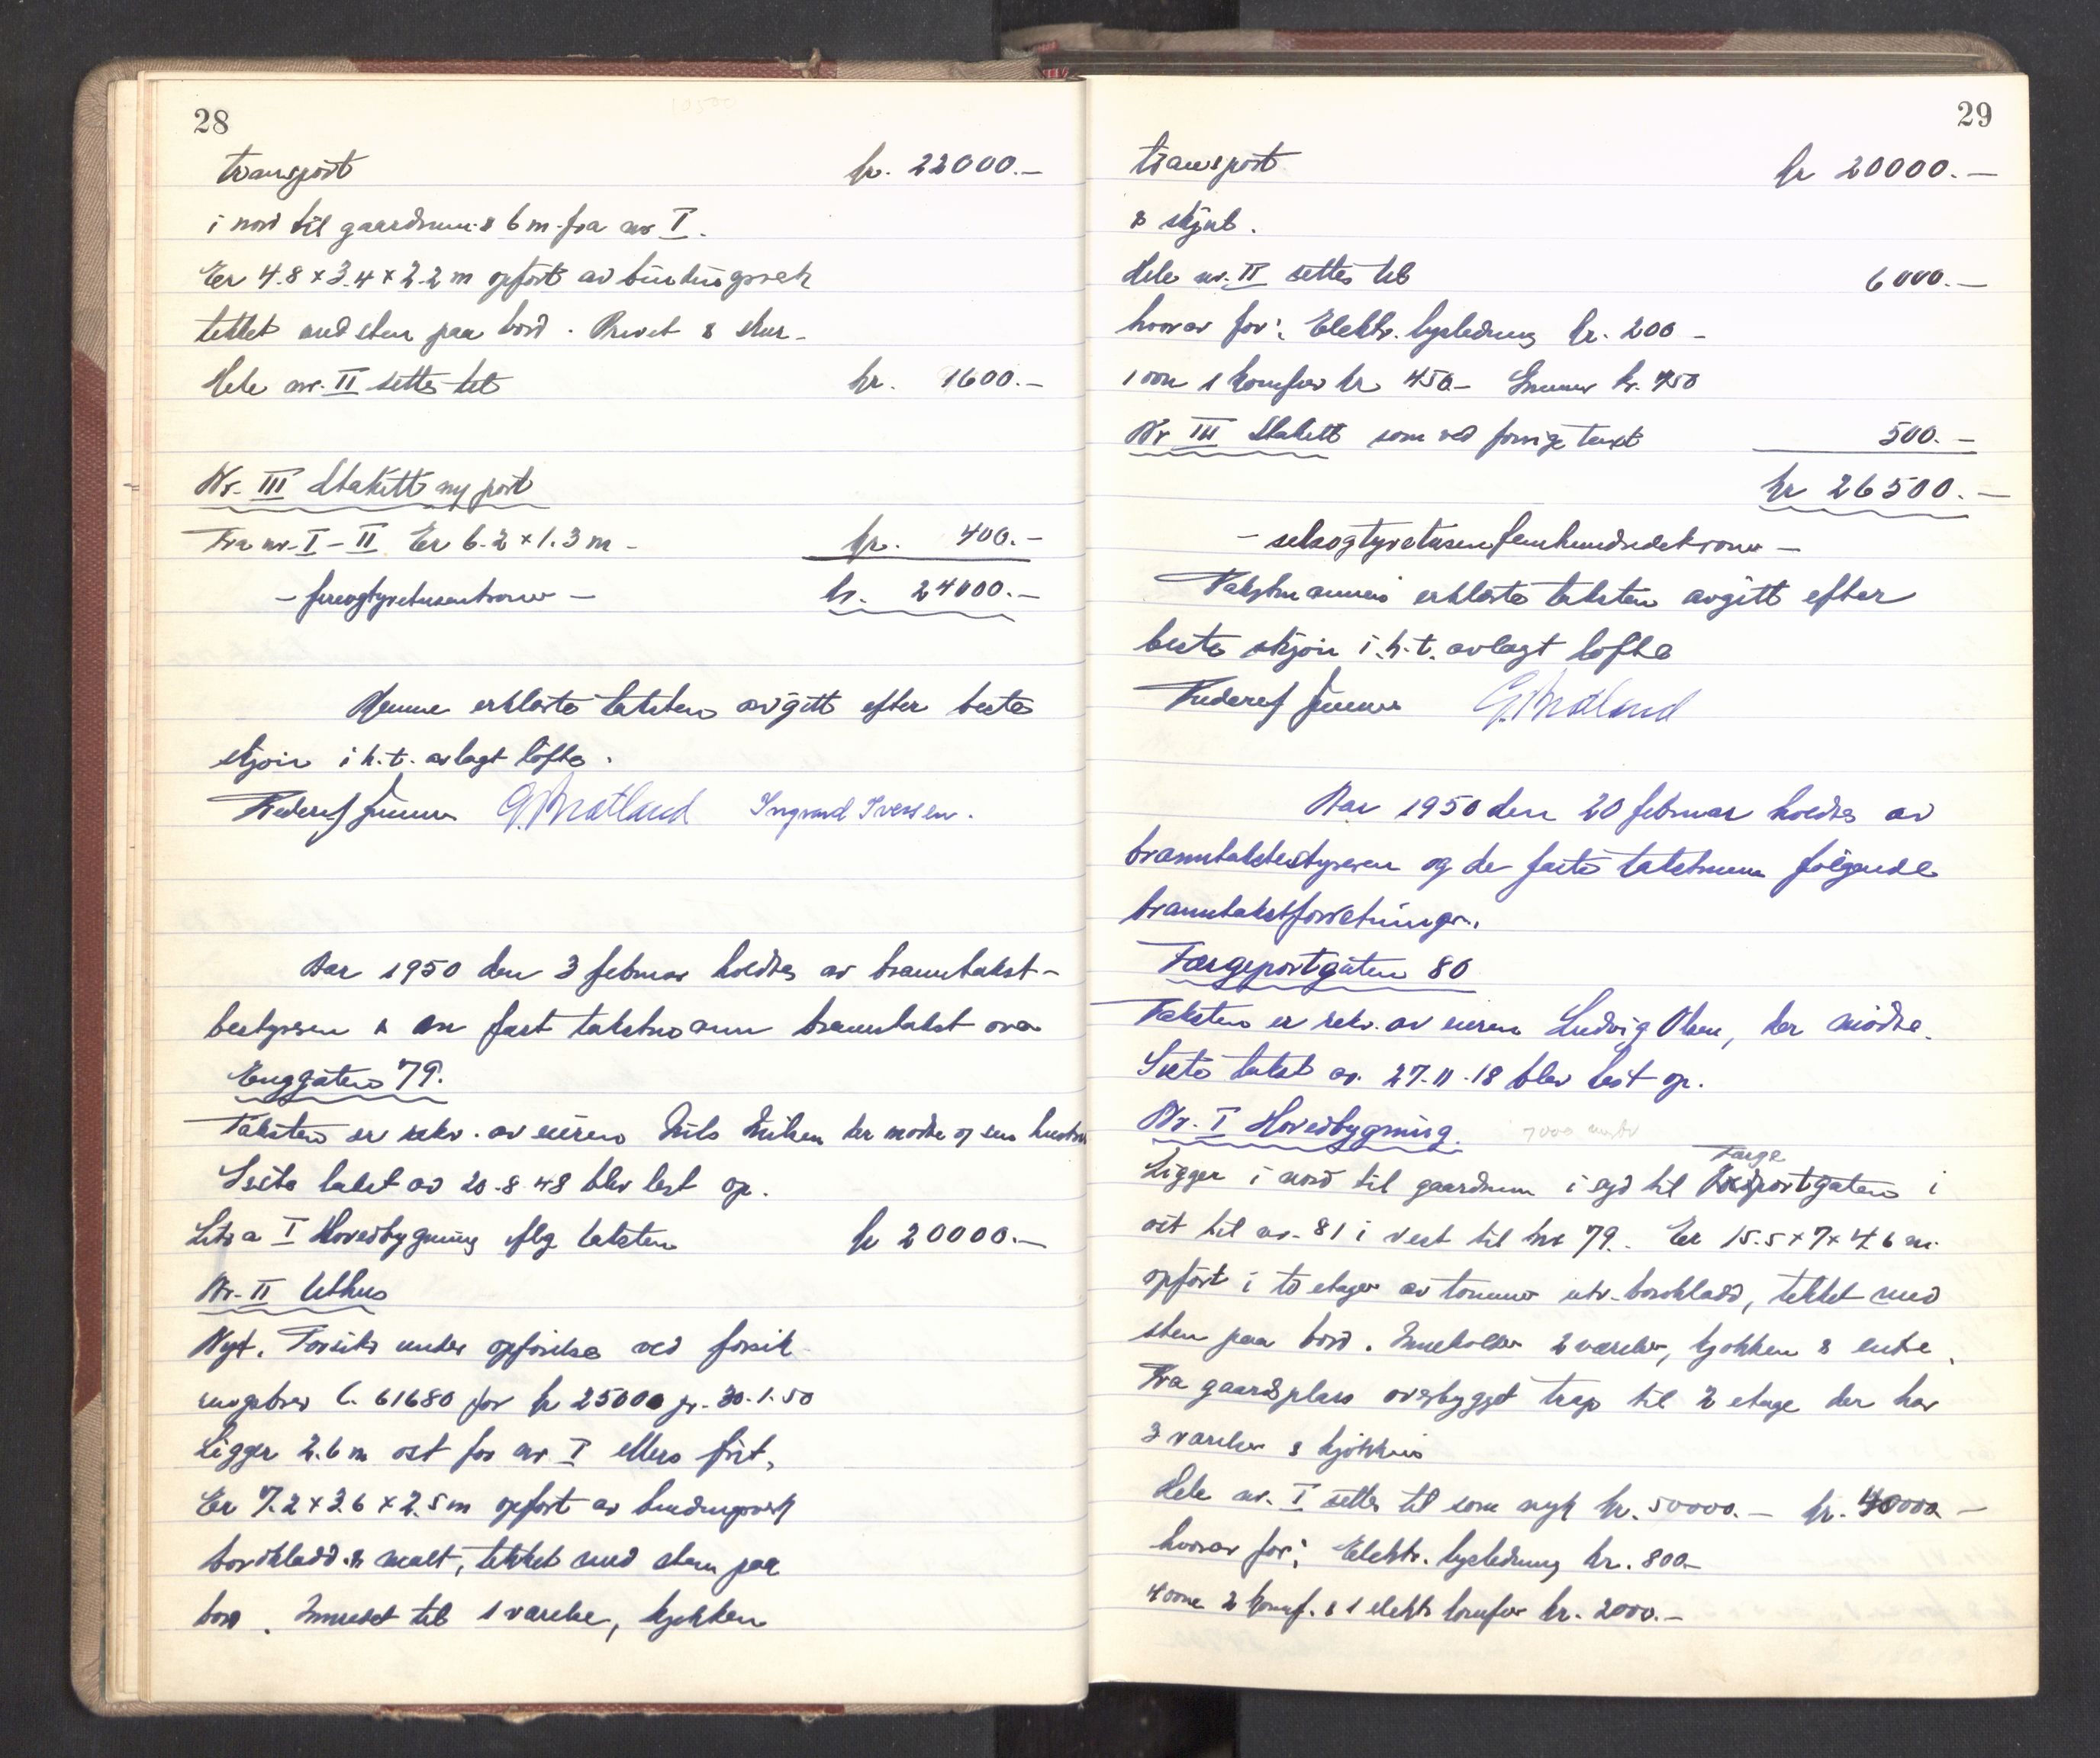 28
transport kr. 22000.-
i nord til gaardsrum & 6 m fra nr I.
Er 4.8 x 3.4 x 2.2 m opført av bindingsverk
tekket med sten paa bord. Privet & skur.
Hele nr. II settes til kr. 1600.-
Nr. III Stakitt m/ port
Fra nr. I - II Er 6.2 x 1.3 m. kr. 400.-
- fireogtyvetusenkroner - kr. 24000.-
Menne erklærte taksten avgitt efter beste
skjøn i h.t. avlagt løfte.
G. Bratland Ingvard Iversen.
Aar 1950 den 3 februar holdtes av branntakst-
bestyreren & en fast takstmann branntakst over
Enggaten 79.
Taksten er rekv. av eieren Nils Nilsen der møtte og sin hustru
Siste takst av 20.8.48 blev lest op.
Litra I Hovedbygning iflg taksten kr 20000.-
Nr. II Uthus
Nytt. Forsikr under opførelse ved forsik
ringsbrev C. 61680 for kr 25000 pr. 30.1.50
Ligger 2.6 m øst for nr I ellers frit,
Er 7.2 x 3.6 x 2.5 m opført av bindingsverk
bordkladd & malt, tekket med sten paa
bord. Innredet til 1 værelse, kjøkken
29
transport kr 20000.-
& skjul.
Hele nr. II settes til 6000.-
hvorav for: Elektr. lysledning kr. 200 -
1 ovn 1 komfur kr 450.- kr. 450
Nr III Stakitt som ved forrige takst 500.-
kr 26500.-
- seksogtyvetusenfemhundredekroner -
Takstmannen erklærte taksten avgitt efter
beste skjøn i.h.t. avlagt løfte
G. Bratland
Aar 1950 den 20 februar holdtes av
branntakstbestyreren og de faste takstmenn følgende
branntakstforretninger.
Færgeportgaten 80
Taksten er rekv. av eieren Ludvig Olsen, der møtte.
Siste takst av 27.11.18 blev lest op.
Nr. I Hovedbygning.
Færge
Ligger i nord til gaardsrum i syd til portgaten i
øst til nr. 81 i vest til nr 79. Er 15.5 x 7 x 4.6 m.
opført i to etager av tømmer utv. bordkladd, tekket med
sten paa bord. Inneholder 2 værelser, kjøkken & entre.
Fra gaardsplass overbygget trap til 2 etage der har
3 værelser & kjøkken
Hele nr. I settes til som nytt kr. 50000.- kr. 40000.-
hvorav for: Elektr. lysledning kr. 800.-
4 ovne 2 komf. & 1 elektr komfur kr. 2000.-